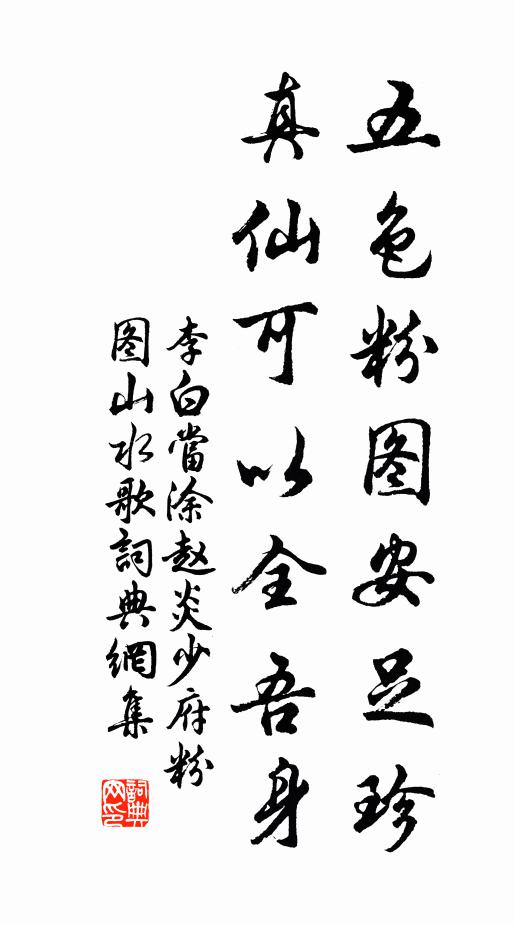 五色粉图安足珍
真仙可以全吾身
李白當涂赵炎少府粉
图山水歌詞典網集
詞典
网印